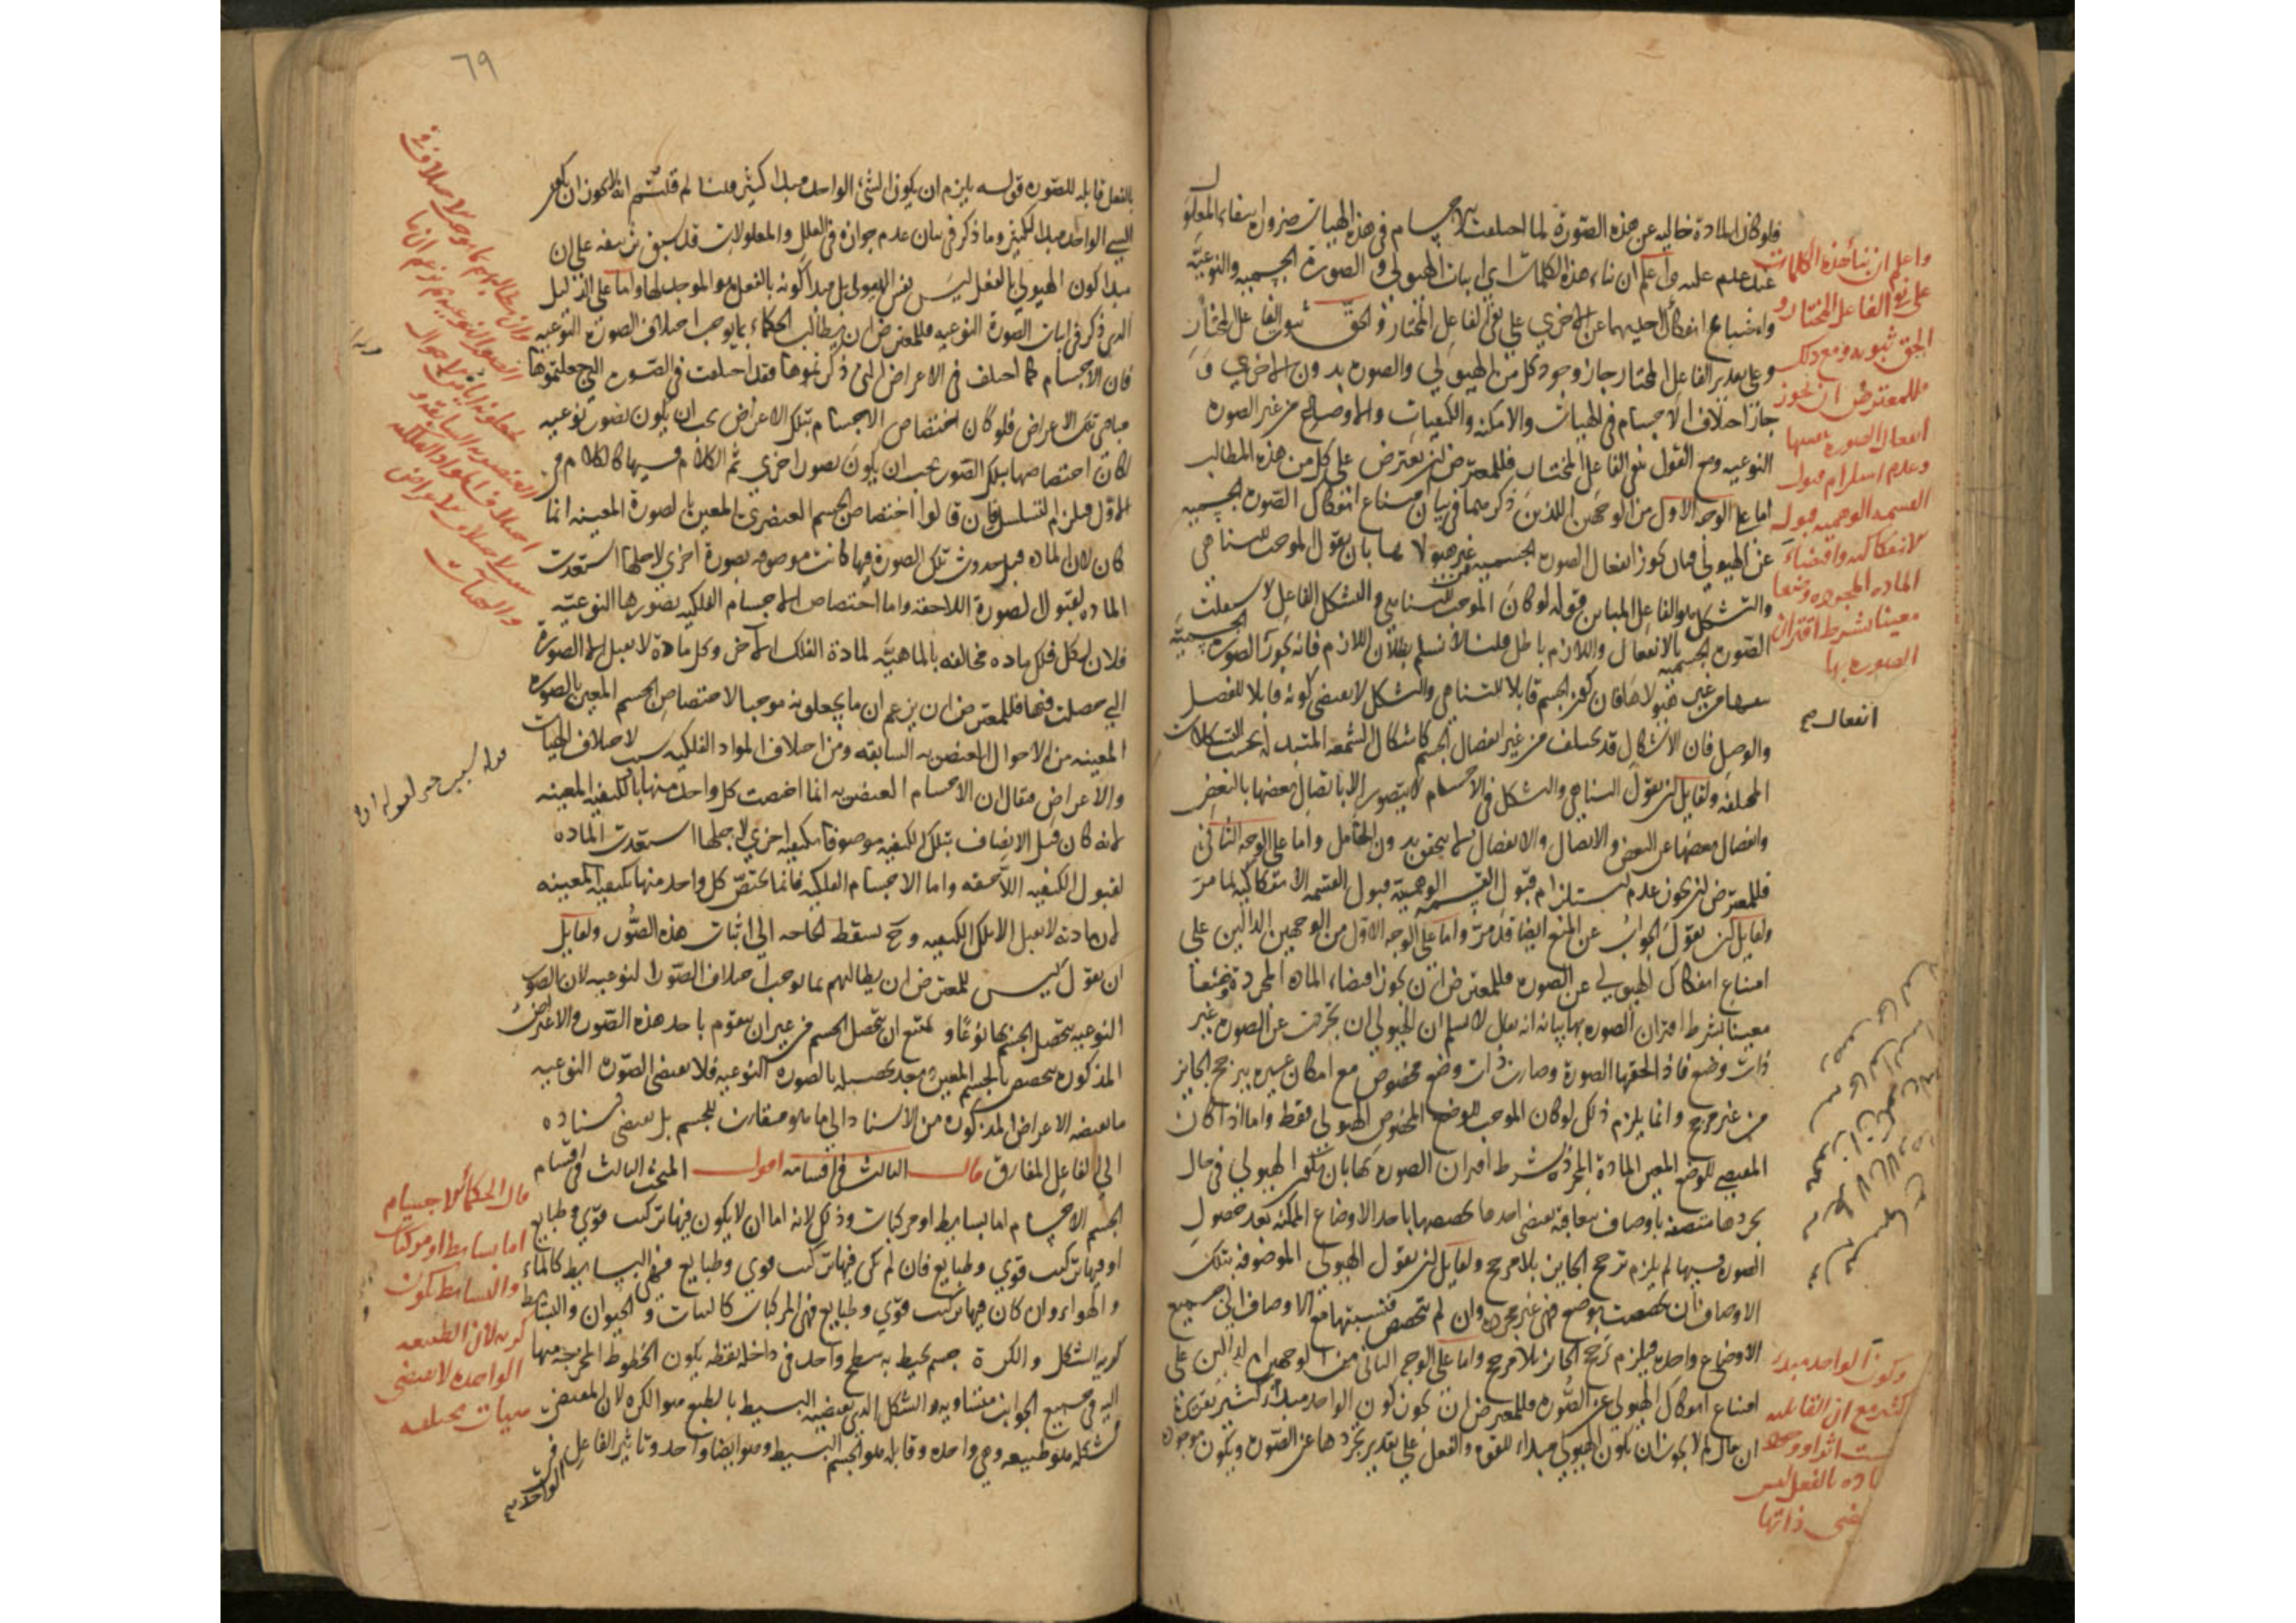 فلو كان المادة خاليه عن هذه الصورة لما اختلفت الاجسام في هذه الهيات ضرورة انتفاء المعلول
عند عدم علته واعلم ان بناء هذه الكلمات اي اثبات الهيولي والصورة الجسميه والنوعيه
وامتناع انفكاك احديهما عن الاخري علي نفي الفاعل المختار والحق ثبوت الفاعل المختار
وعلي تقدير الفاعل المختار جاز وجود كل من الهيولي والصوره بدون الاخري و
جاز اختلاف الاجسام في الهيات والامكنه والكيفيات والاوضاع من غير الصوره
النوعيه ومع القول بنفي الفاعل المختار فللمعترض ان يعترض علي كل من هذه المطالب
اما علي الوجه الاول من الوجهين اللذين ذكرهما في بيان امتناع انفكاك الصوره الجسميه
عن الهيولي فبان يجوز انفعال الصوره الجسميه من غير هيولاها بان يقول الموجب للتناهي
والتشكل هو الفاعل المباين قوله لو كان الموجب للتناهي والتشكل الفاعل لاستقلت
الصوره الجسميه بالانفعال واللازم باطل قلنا لا نسلم بطلان اللازم فانه يجوز الصوره الجسميه
بنفسها من غير هيولاها فان كون الجسم قابلا للتناهي والتشكل لا يقتضي كونه قابلا للفصل
والوصل فان الاشكال قد يختلف من غير انفصال الجسم كاشكال الشمعه المتبدله بحسب التشكلات
المختلفه ولقايل ان يقول التناهي والتشكل في الاجسام لا يتصور الا باتصال بعضها بالبعض
وانفصال بعضها عن البعض والاتصال والانفصال لا يتحقق بدون القابل واما علي الوجه الثاني
فللمعترض ان يجوز عدم استلزام قبول القسمه الوهميه قبول القسمه الانفكاكيه لما مر
ولقايل ان يقول الجواب عن المنع ايضا قد مر واما علي الوجه الاول من الوجهين الدالين علي
امتناع انفكاك الهيولي عن الصوره فللمعترض ان يجوز اقتضاء الماده المجردة وضعا
معينا بشرط اقتران الصوره بها بيانه ان يقال لا نسلم ان الهيولي ان تجردت عن الصوره غير
ذات وضع فاذا لحقتها الصورة وصارت ذات وضع مخصوص مع امكان غيره يترجح الجايز
من غير مرجح وانما يلزم ذلك لو كان الموجب للوضع المخصوص الهيولي فقط واما اذا كان
المقتضي للوضع المعين المادة المجردة بشرط اقتران الصوره بها بان تكون الهيولي في حال
تجردها متصفه باوصاف متعاقبه يقتضي احدها تخصيصها باحد الاوضاع الممكنه بعد حصول
الصوره فيها لم يلزم ترجح الجايز بلا مرجح ولقايل ان يقول الهيولي الموصوفه بتلك
الاوصاف ان تخصصت بوضع فهي غير مجرده وان لم تتخصص فنسبتها مع الاوصاف الي جميع
الاوضاع واحده فيلزم ترجح الجايز بلا مرجح واما علي الوجه الثاني من الوجهين الدالين علي
امتناع انفكاك الهيولي عن الصوره فللمعترض ان يجوز كون الواحد مبدأ لكثير تقريره
ان يقال لم لا يجوز ان يكون الهيولي مبداء للقوه والفعل علي تقدير تجردها عن الصوره ويكون موجوده
واعلم ان بناء هذه الكلمات
علي نفي الفاعل المختار و
الحق ثبوته ومع ذلك
فللمعترض ان يجوز
انفعال الصوره بنفسها
وعدم استلزام قبول
القسمه الوهميه قبول
الانفكاكيه واقتضاء
الماده المجرده وضعا
معينا بشرط اقتران
الصوره بها
انفعال صح
وكون الواحد مبداء
لكثير مع ان القابليه
ليست اثرا ووجود
الماده بالفعل ليس
بمقتضى ذاتها
٦٩
بالفعل قابله للصوره قوله يلزم ان يكون الشيء الواحد مبدا لكثير قلنا لم قلتم انه لا يجوز ان يكون
الشيء الواحد مبدا لكثير وما ذكر في بيان عدم جوازه في العلل والمعلولات قد سبق تزييفه علي ان
مبدا كون الهيولي بالفعل ليس نفس الهيولي بل مبدا كونه بالفعل هو الموجد لها واما علي الدليل
الذي ذكر في اثبات الصورة النوعيه فللمعترض ان يطالب الحكماء بما يوجب اختلاف الصورة النوعيه
فان الاجسام كما اختلف في الاعراض التي ذكرتموها فقد اختلفت في الصور التي جعلتموها
مبادي تلك الاعراض فلو كان اختصاص الاجسام بتلك الاعراض يجب ان يكون بصور نوعيه
لكان اختصاصها بتلك الصور يجب ان يكون بصور اخري ثم الكلام فيها كالكلام في
الاول فيلزم التسلسل فان قالوا اختصاص الجسم العنصري المعين بالصورة المعينه انما
كان لان الماده قبل حدوث تلك الصورة فيها كانت موصوفه بصورة اخري لاجلها استعدت
الماده لقبول الصورة اللاحقه واما اختصاص الاجسام الفلكيه بصورها النوعيه
فلان لكل فلك ماده مخالفه بالماهيه لمادة الفلك الاخر وكل مادة لا تقبل الا الصورة
التي حصلت فيها فللمعترض ان يزعم ان ما يجعلونه موجبا لاختصاص الجسم المعين بالصوره
المعينه من الاحوال العنصريه السابقه ومن اختلاف المواد الفلكيه سبب لاختلاف الهيات
والاعراض فيقال ان الاجسام العنصريه انما اختصت كل واحد منها بالكيفيه المعينه
لانه كان قبل الاتصاف بتلك الكيفيه موصوفا بكيفيه اخري لاجلها استعدت الماده
لقبول الكيفيه اللاحقه واما الاجسام الفلكيه فانما تختص كل واحد منها بكيفيه المعينه
لان مادته لا تقبل الا تلك الكيفيه وح تسقط الحاجه الي اثبات هذه الصور ولقايل
ان يقول ليس للمعترض ان يطالبهم بما يوجب اختلاف الصور النوعيه لان بالصور
النوعيه يتحصل الجسم بها نوعا ويمتنع ان يتحصل الجسم من غير ان يتقوم باحد هذه الصور والاعراض
المذكوره تتخصص بالجسم المعين بعد تحصيله بالصوره النوعيه فلا تقتضي الصوره النوعيه
ما تقتضيه الاعراض المذكوره من الاسناد الي ما هو مقارن للجسم بل تقتضي اسناده
الي الفاعل المفارق قال الثالث في اقسامه اقول المبحث الثالث في اقسام
الجسم الاجسام اما بسايط او مركبات وذلك لانه اما ان لا يكون فيها تركيب قوي وطبايع
او فيها تركيب قوي وطبايع فان لم تكن فيها تركيب قوي وطبايع فهي البسايط كالماء
والهواء وان كان فيها تركيب قوي وطبايع فهي المركبات كالنبات والحيوان والبسايط
كرية الشكل والكرة جسم يحيط به سطح واحد في داخله نقطه يكون الخطوط المخرجه منها
اليه في جميع الجوانب متساويه والشكل الذي يقتضيه البسيط بالطبع هو الكره لان المقتضي
لشكله هو طبيعه وهي واحده وقابله هو الجسم البسيط وهو ايضا واحد وتاثير الفاعل الواحد في
الواحد صح
وان يطالبهم بما يوجب الاختلاف في
الصور النوعيه ثم يزعم ان ما
يجعلونه اياه من الاحوال
العنصريه السابقه و
اختلاف المواد الفلكيه
سبب لاختلاف الاعراض
والهيات
قال الحكماء الاجسام
اما بسايط او مركبات
والبسايط تكون
كريه لان الطبيعه
الواحده لا تقتضي
هيات مختلفه